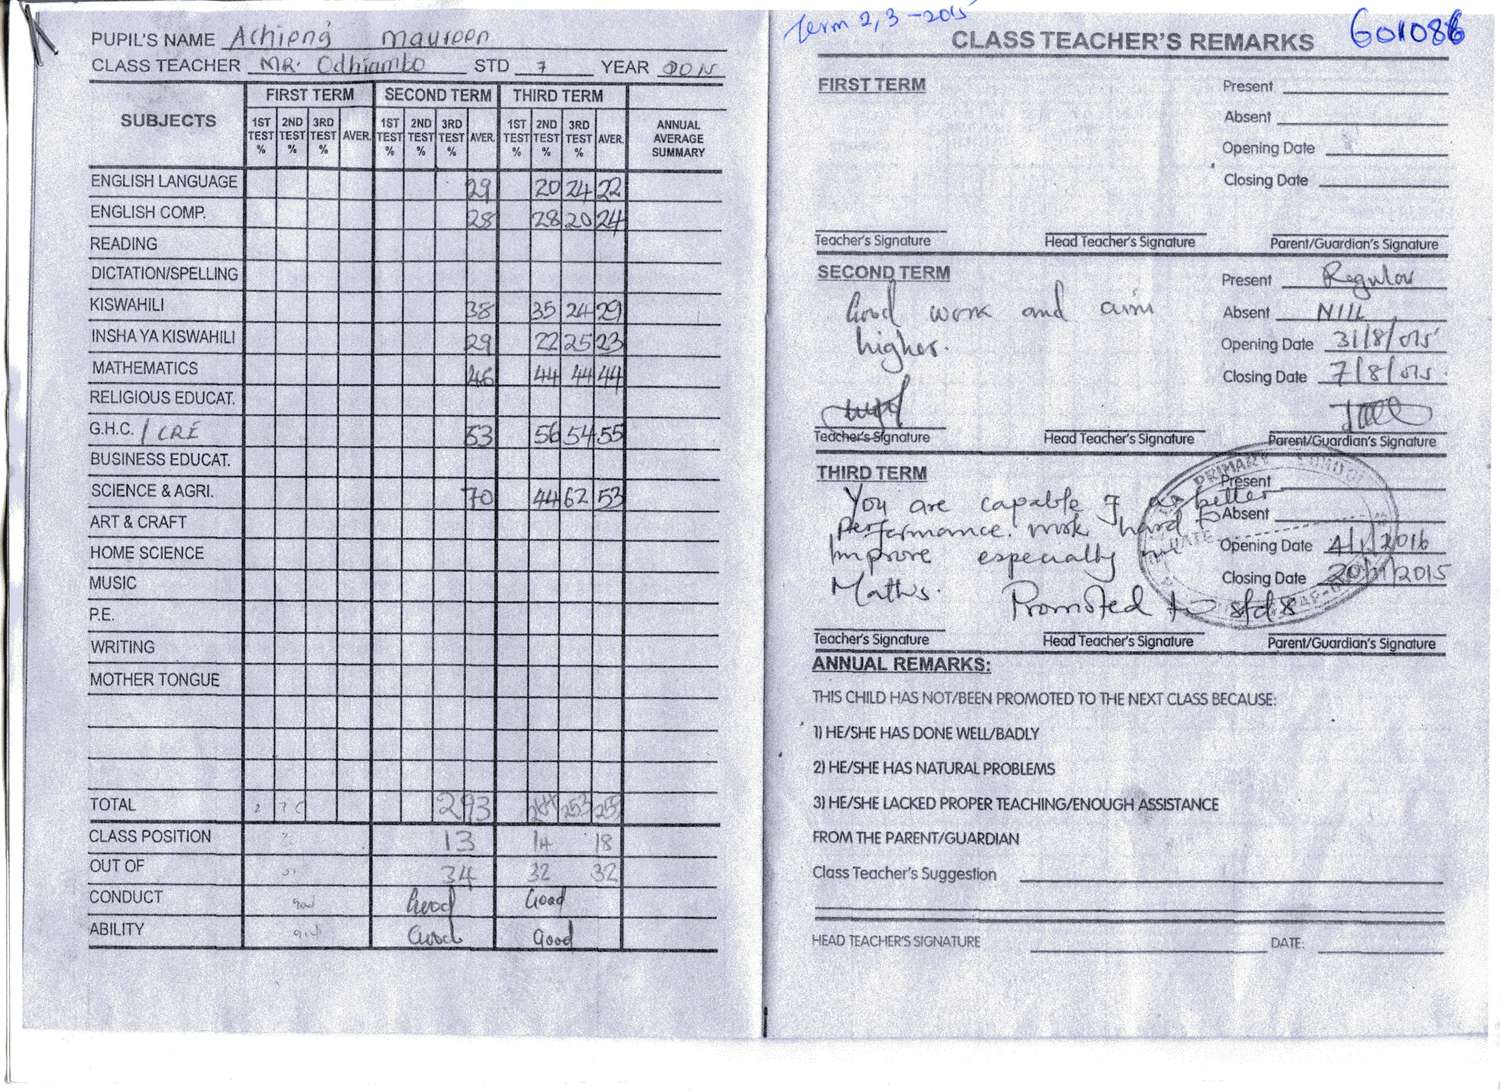 PUPIL'S NAME Achieng' Maureen
CLASS TEACHER MR. Odhiambo STD 7 YEAR 2015
SUBJECTS
FIRST TERM SECOND TERM THIRD TERM
1ST TEST % 2ND TEST % 3RD TEST % AVER. 1ST TEST % 2ND TEST % 3RD TEST % AVER. 1ST TEST % 2ND TEST % 3RD TEST % AVER. ANNUAL AVERAGE SUMMARY
ENGLISH LANGUAGE 29 20 24 22
ENGLISH COMP. 28 28 20 24
READING
DICTATION/SPELLING
KISWAHILI 38 35 24 29
INSHA YA KISWAHILI 29 22 25 23
MATHEMATICS 46 44 44 44
RELIGIOUS EDUCAT.
G.H.C. / CRE 53 56 54 55
BUSINESS EDUCAT.
SCIENCE & AGRI. 70 44 62 53
ART & CRAFT
HOME SCIENCE
MUSIC
P.E.
WRITING
MOTHER TONGUE
TOTAL 293 253
CLASS POSITION 13 14 18
OUT OF 34 32 32
CONDUCT Good Good
ABILITY Good Good
Term 2, 3 - 2015
601086
CLASS TEACHER'S REMARKS
FIRST TERM
Present
Absent
Opening Date
Closing Date
Teacher's Signature Head Teacher's Signature Parent/Guardian's Signature
SECOND TERM
Good work and aim
higher.
Present Regular
Absent NILL
Opening Date 31/8/015
Closing Date 7/8/015
Teacher's Signature Head Teacher's Signature Parent/Guardian's Signature
THIRD TERM
You are capable of a better
Performance. work hard to
improve especially in
Maths. Promoted to std 8
PRIMARY
DATE
Present
Absent
Opening Date 4/1/2016
Closing Date 20/11/2015
Teacher's Signature Head Teacher's Signature Parent/Guardian's Signature
ANNUAL REMARKS:
THIS CHILD HAS NOT/BEEN PROMOTED TO THE NEXT CLASS BECAUSE:
1) HE/SHE HAS DONE WELL/BADLY
2) HE/SHE HAS NATURAL PROBLEMS
3) HE/SHE LACKED PROPER TEACHING/ENOUGH ASSISTANCE
FROM THE PARENT/GUARDIAN
Class Teacher's Suggestion
HEAD TEACHER'S SIGNATURE DATE: